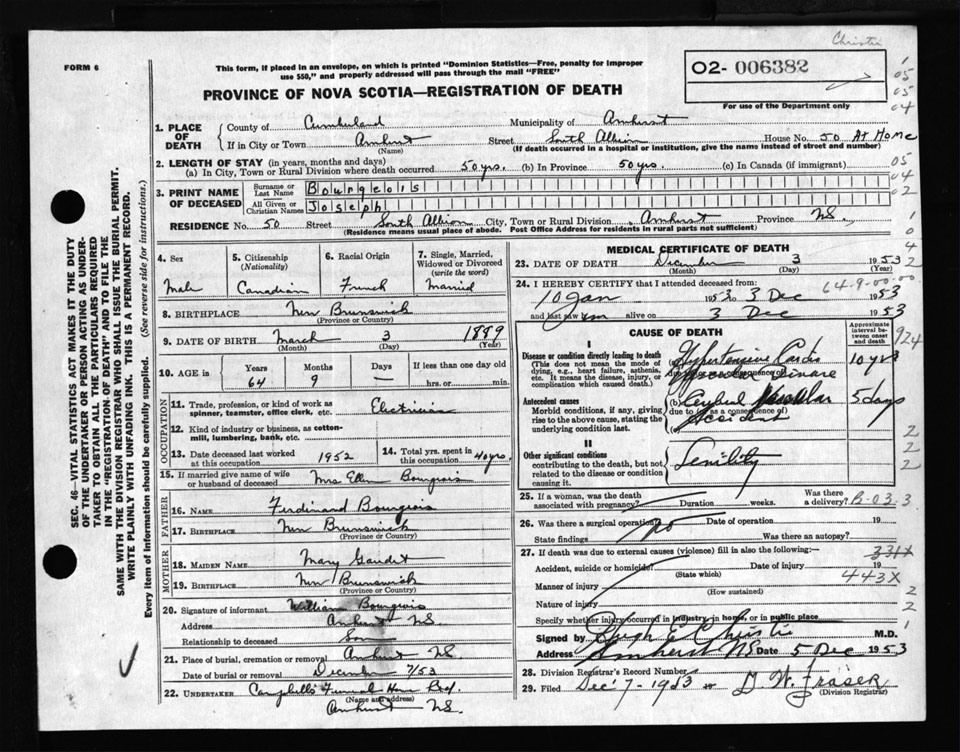 Christie
FORM 6
This form, if placed in an envelope, on which is printed "Dominion Statistics—Free, penalty for improper
use $50," and properly addressed will pass through the mail "FREE"
02- 006382
For use of the Department only
PROVINCE OF NOVA SCOTIA—REGISTRATION OF DEATH
1. PLACE OF DEATH
County of Cumberland Municipality of Amherst
If in City or Town Amherst Street South Albion House No. 50 At Home
(Name) (If death occurred in a hospital or institution, give the name instead of street and number)
2. LENGTH OF STAY (in years, months and days)
(a) In City, Town or Rural Division where death occurred 50 yrs. (b) In Province 50 yrs. (c) In Canada (if immigrant)
3. PRINT NAME OF DECEASED
Surname or Last Name Bourgeois
All Given or Christian Names Joseph
RESIDENCE No. 50 Street South Albion City, Town or Rural Division Amherst Province NS.
(Residence means usual place of abode. Post Office Address for residents in rural parts not sufficient)
4. Sex Male
5. Citizenship (Nationality) Canadian
6. Racial Origin French
7. Single, Married, Widowed or Divorced (write the word) Married
8. BIRTHPLACE New Brunswick
(Province or Country)
9. DATE OF BIRTH March 3 1889
(Month) (Day) (Year)
10. AGE in Years 64 Months 9 Days — If less than one day old hrs. or min.
OCCUPATION
11. Trade, profession, or kind of work as spinner, teamster, office clerk, etc. Electrician
12. Kind of industry or business, as cotton-mill, lumbering, bank, etc.
13. Date deceased last worked at this occupation 1952
14. Total yrs. spent in this occupation 40 yrs.
15. If married give name of wife or husband of deceased Mrs Ellen Bourgeois
FATHER
16. NAME Ferdinand Bourgeois
17. BIRTHPLACE New Brunswick
(Province or Country)
MOTHER
18. MAIDEN NAME Mary Gaudet
19. BIRTHPLACE New Brunswick
(Province or Country)
20. Signature of informant William Bourgeois
Address Amherst NS
Relationship to deceased Son
21. Place of burial, cremation or removal Amherst NS
Date of burial or removal December 7/53
22. UNDERTAKER Campbells Funeral Home
(Name and address)
Amherst NS.
MEDICAL CERTIFICATE OF DEATH
23. DATE OF DEATH December 3 1953
(Month) (Day) (Year)
24. I HEREBY CERTIFY that I attended deceased from:
64-9-00-00
10 Jan 195 to 3 Dec 1953
and last saw him alive on 3 Dec 1953
CAUSE OF DEATH
Approximate interval between onset and death
I
Disease or condition directly leading to death
(This does not mean the mode of dying, e.g., heart failure, asthenia, etc. It means the disease, injury, or complication which caused death.)
(a) Hypertensive Cardio Vascular Disease 10 yrs
due to (or as a consequence of)
Antecedent causes
Morbid conditions, if any, giving rise to the above cause, stating the underlying condition last.
(b) Cerebral Vascular Accident 5 days
due to (or as a consequence of)
(c)
II
Other significant conditions
contributing to the death, but not related to the disease or condition causing it.
Senility
25. If a woman, was the death associated with pregnancy? Duration weeks. Was there a delivery?
B-03-3
26. Was there a surgical operation? No Date of operation 19
State findings Was there an autopsy?
27. If death was due to external causes (violence) fill in also the following:—
331X
Accident, suicide or homicide? Date of injury 19
(State which)
443X
Manner of injury
(How sustained)
Nature of injury
Specify whether injury occurred in industry, in home, or in public place
Signed by Hugh E Christie M.D.
Address Amherst NS Date 5 Dec 1953
28. Division Registrar's Record Number
29. Filed Dec 7 - 1953 D. W. Fraser
(Division Registrar)
SEC. 46—VITAL STATISTICS ACT MAKES IT THE DUTY
OF THE UNDERTAKER OR PERSON ACTING AS UNDER-
TAKER TO OBTAIN ALL THE PARTICULARS REQUIRED
IN THE "REGISTRATION OF DEATH" AND TO FILE THE
SAME WITH THE DIVISION REGISTRAR WHO SHALL ISSUE THE BURIAL PERMIT.
WRITE PLAINLY WITH UNFADING INK. THIS IS A PERMANENT RECORD.
Every item of information should be carefully supplied. (See reverse side for instructions.)
1
05
05
04
05
04
02
1
0
4
2
924
2
2
2
2
2
1